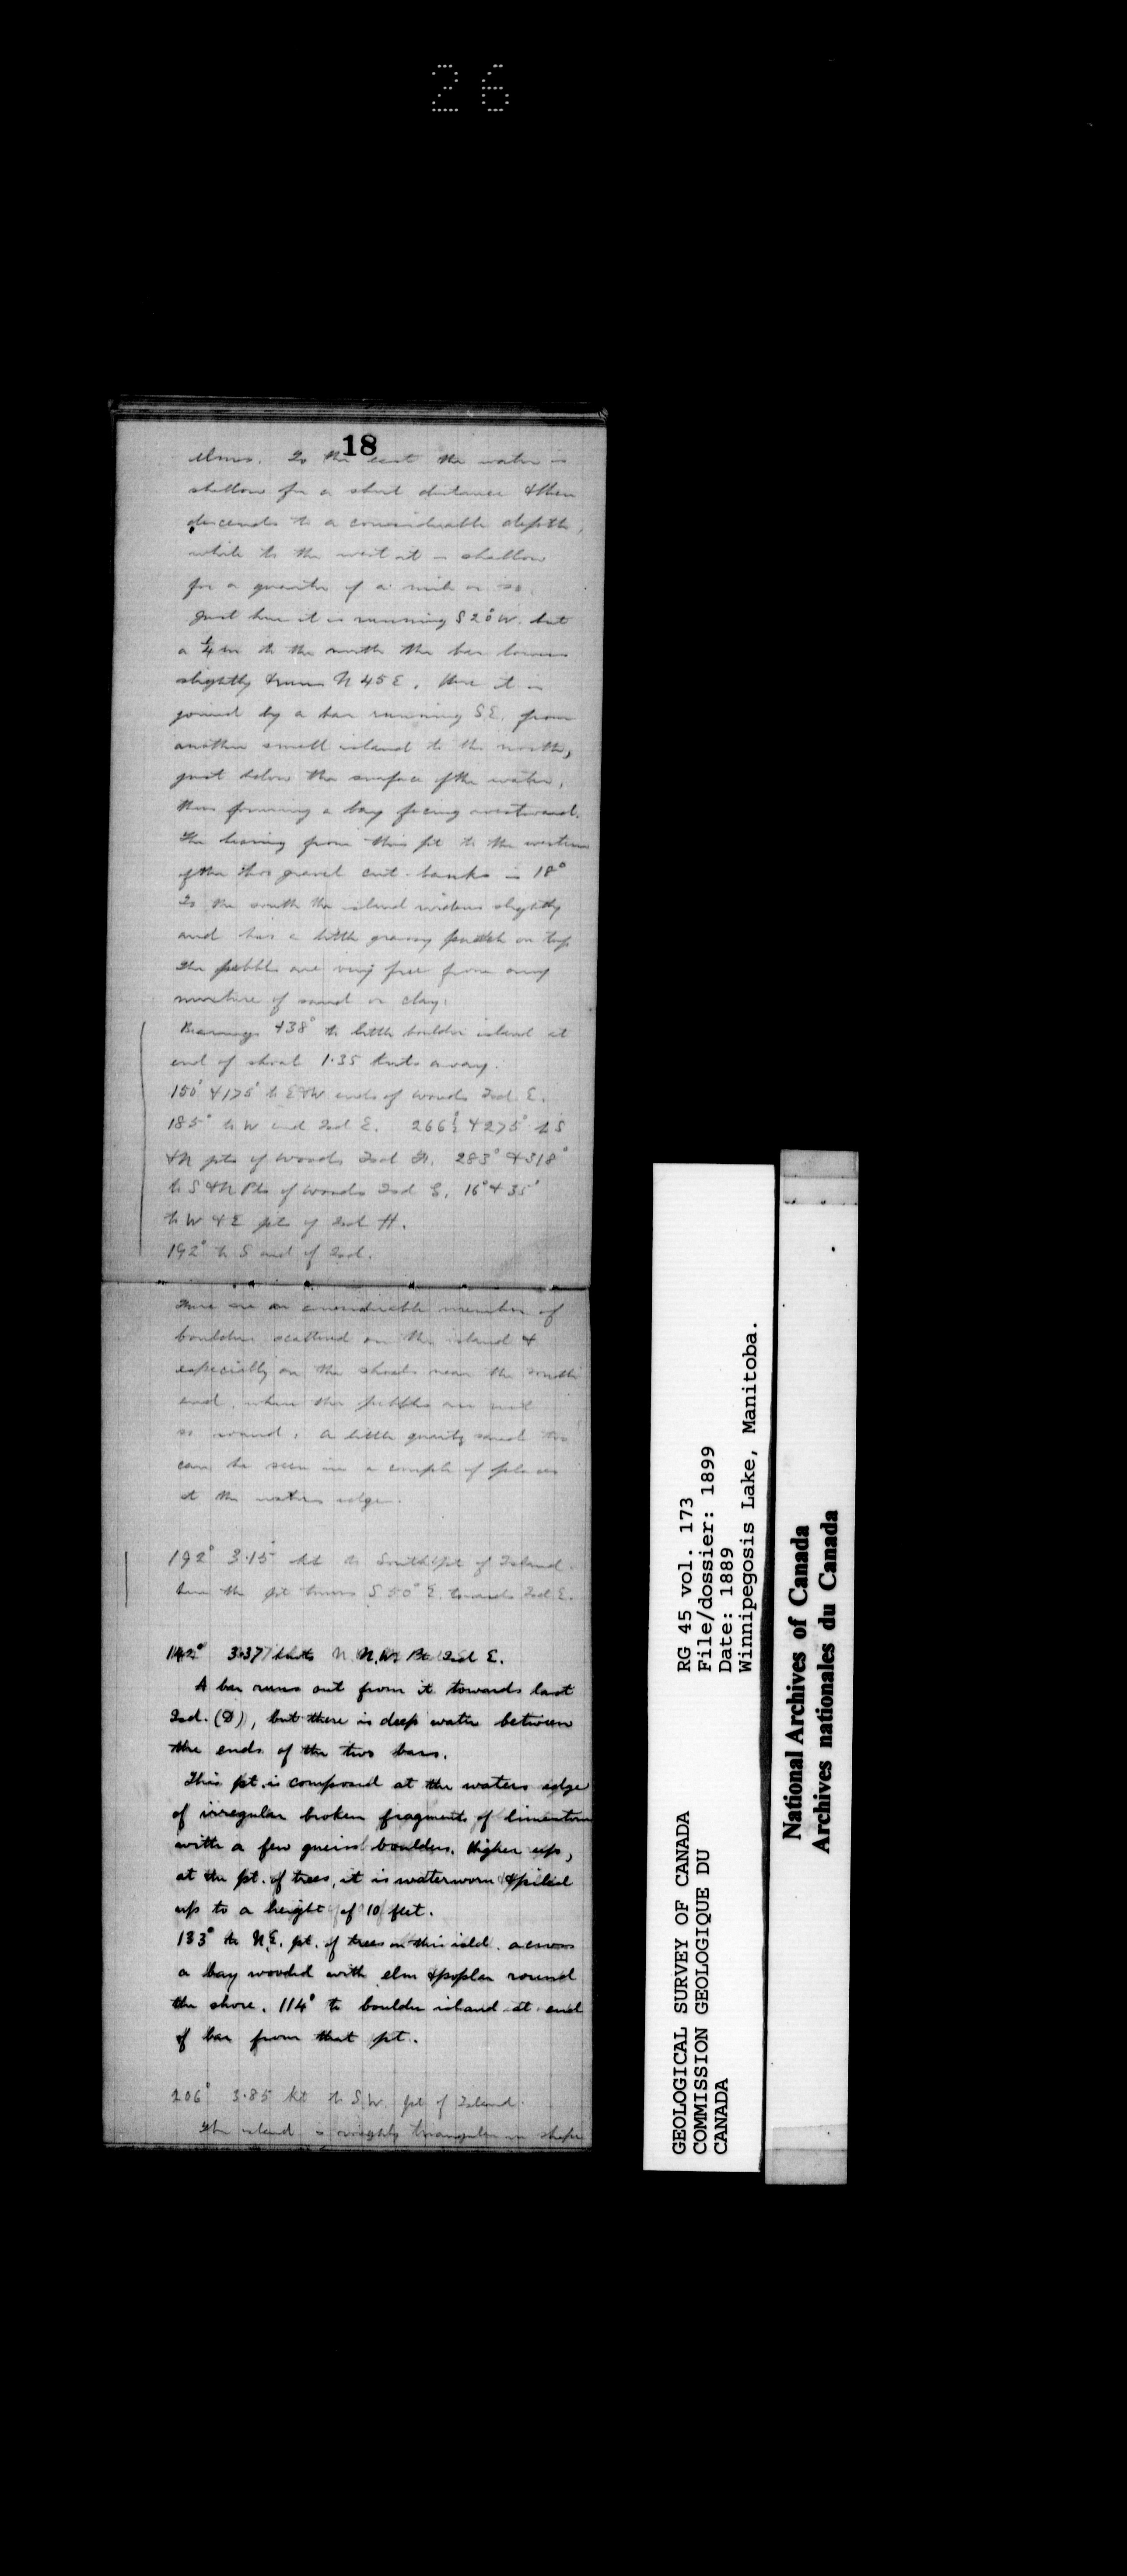 26
18
elms. To the east the water is
shallow for a short distance & then
descends to a considerable depth,
while to the west it is shallow
for a quarter of a mile or so.
Just here it is running S 20° W. but
a ¼ m to the north the bar lowers
slightly & runs N 45 E. Here it is
joined by a bar running SE. from
another small island to the north,
just below the surface of the water,
thus forming a bay facing westward.
The bearing from this pt to the western
of the two gravel cut-banks is 18°
To the south the island widens slightly
and has a little grassy patch on top
The pebbles are very free from any
mixture of sand or clay.
Bearings 438° to little boulder island at
end of shoal 1.35 knts away.
150° & 175° to E & W ends of woods Isd. E.
185° to W end Isd E. 266½ & 275° to S
& N pts of woods Isd 283° & 318°
to S & N Pts of woods Isd G. 16° & 35°
to W & E pts of Isd H.
192° to S end of Isd.
There are a considerable number of
boulders scattered on the island &
especially on the shoals near the south
end, where the pebbles are not
so round. A little quartz sand too
can be seen in a couple of places
at the waters edge.
192° 3.15 kt to South pt of Island.
here the pt turns S 50° E. towards Isd E.
142° 3.37 knts N.W. Pt Isd E.
A bar runs out from it towards last
Isd. (D), but there is deep water between
the ends of the two bars.
This pt. is composed at the waters edge
of irregular broken fragments of limestone
with a few gneiss boulders. Higher up,
at the pt. of trees, it is waterworn & piled
up to a height of 10 feet.
133° to N.E. pt. of trees on this isld. across
a bay wooded with elm & poplar round
the shore. 114° to boulder island at end
of bar from that pt.
206° 3.85 kt to S.W. pt of Island.
The island is roughly triangular in shape
GEOLOGICAL SURVEY OF CANADA
COMMISSION GEOLOGIQUE DU
CANADA
RG 45 vol. 173
File/dossier: 1899
Date: 1889
Winnipegosis Lake, Manitoba.
National Archives of Canada
Archives nationales du Canada